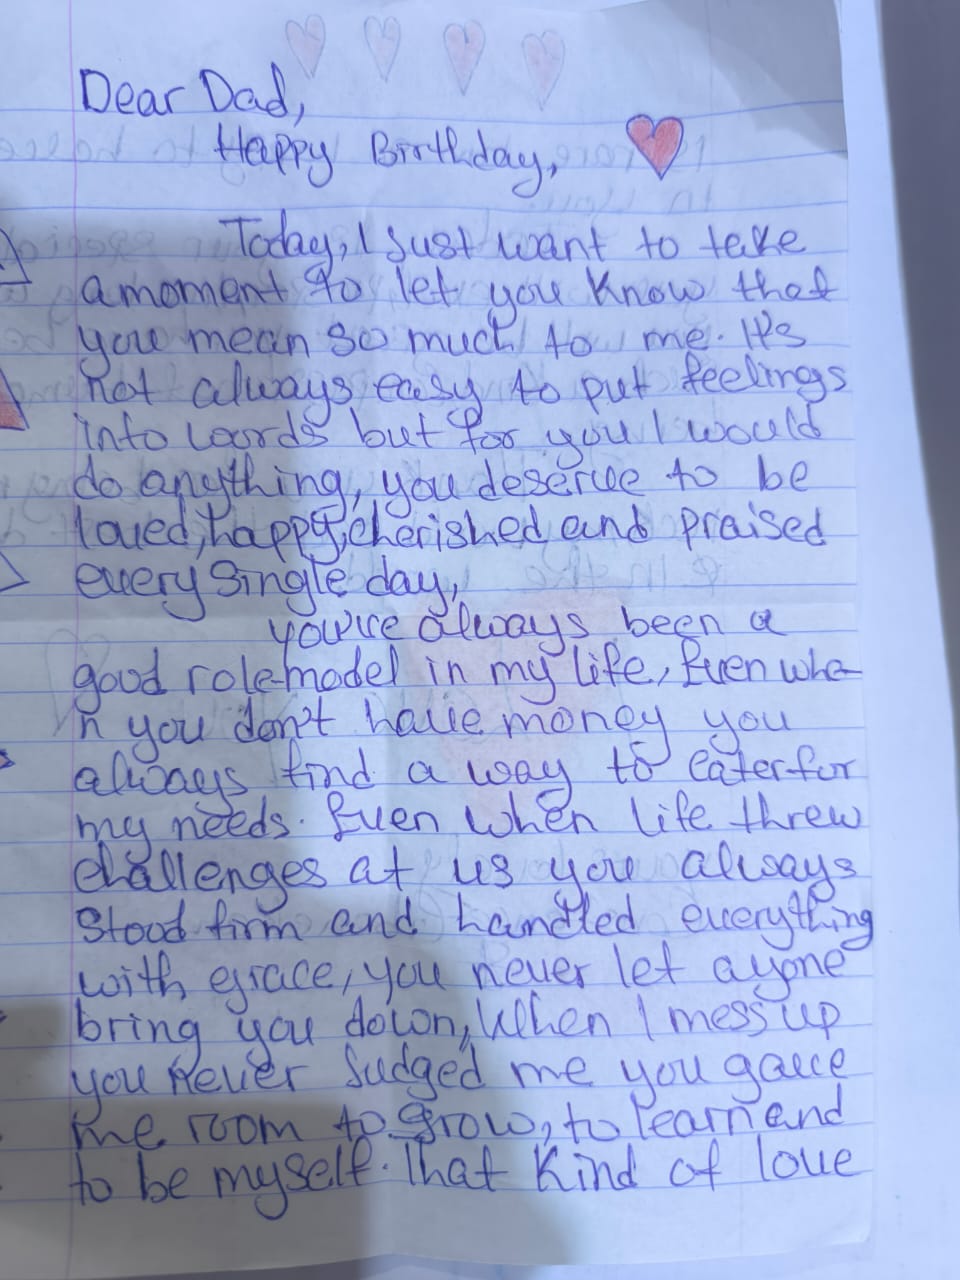 Dear Dad,
Happy Birthday,
Today, I Just want to take
a moment to let you know that
you mean so much to me. It's
not always easy to put feelings
into words but for you I would
do anything, you deserve to be
loved, happy, cherished and praised
every single day,
you've always been a
good role-model in my life, Even whe-
n you don't have money you
always find a way to cater for
my needs. Even when life threw
challenges at us you always
stood firm and handled everything
with grace, you never let ayone
bring you down, When I mess up
you never Judged me you gave
me room to grow, to learn and
to be myself. That kind of love